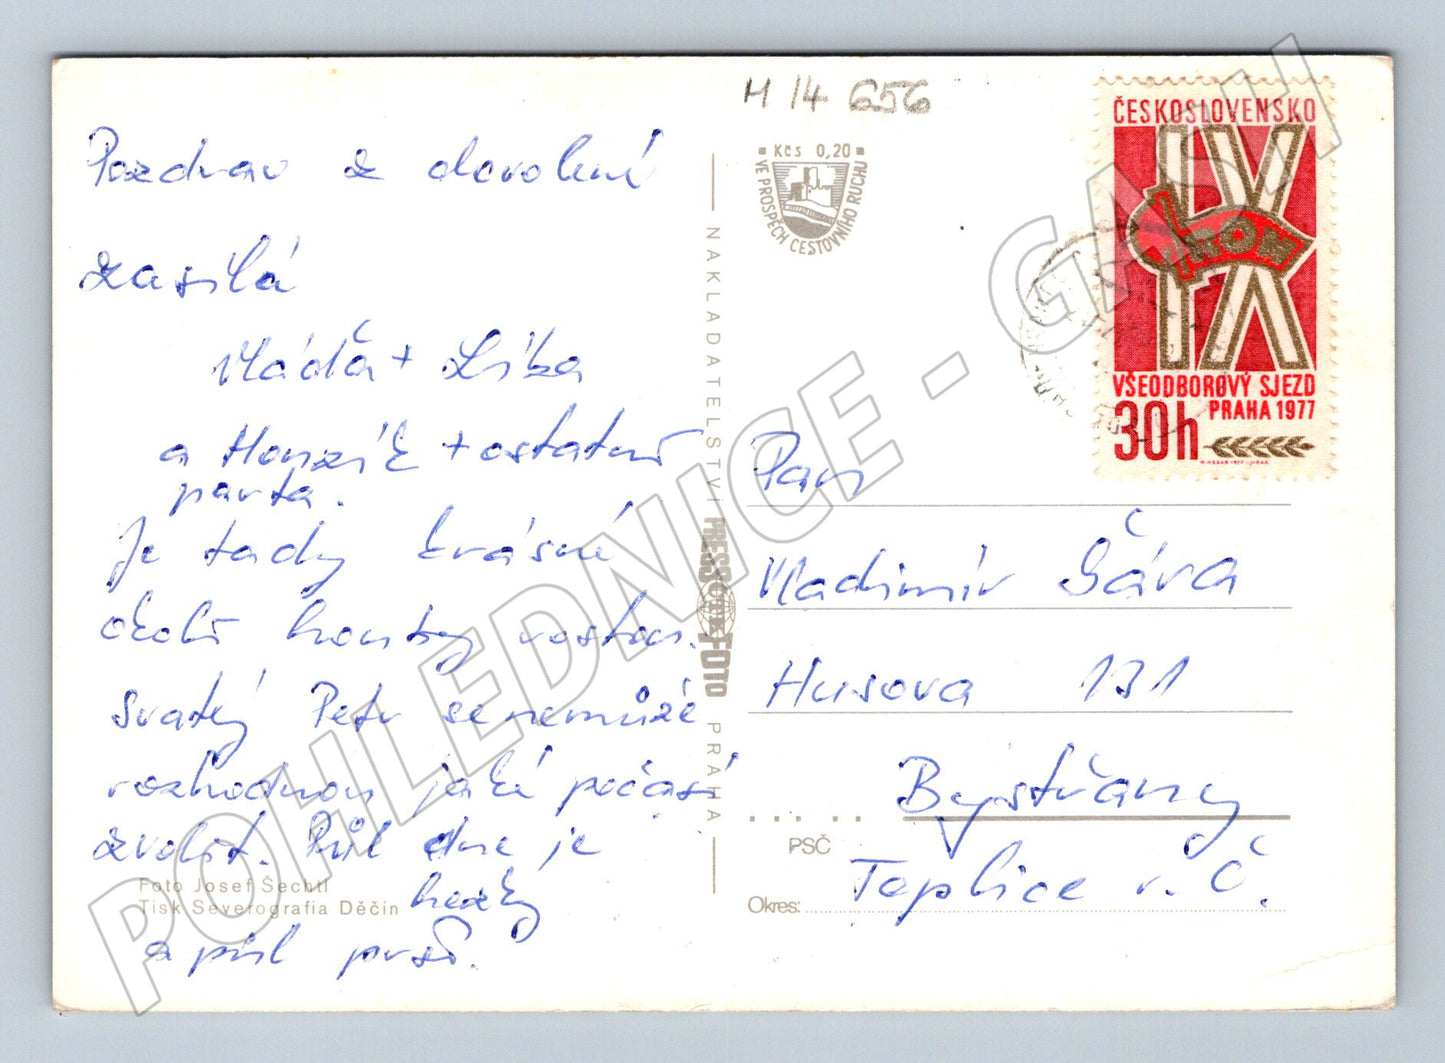 Pozdrav z dovolené
zasílá
Vláďa + Liba
a Honzík + ostatní
parta.
Je tady krásně
okolo houby rostou.
Svatý Petr se nemůže
rozhodnou jaké počasí
zvolit. Půl dne je
hezky
a půl prší.
Foto Josef Šechtl
Tisk Severografia Děčín
NAKLADATELSTVÍ PRESSFOTO PRAHA
M 14 656
Kčs 0,20
VE PROSPĚCH CESTOVNÍHO RUCHU
ČESKOSLOVENSKO
IX
VŠEODBOROVÝ SJEZD
PRAHA 1977
30h
Pan
Vladimír Šáva
Husova 131
Bystřany
PSČ
Teplice v. Č.
Okres:
POHLEDNICE - GASH